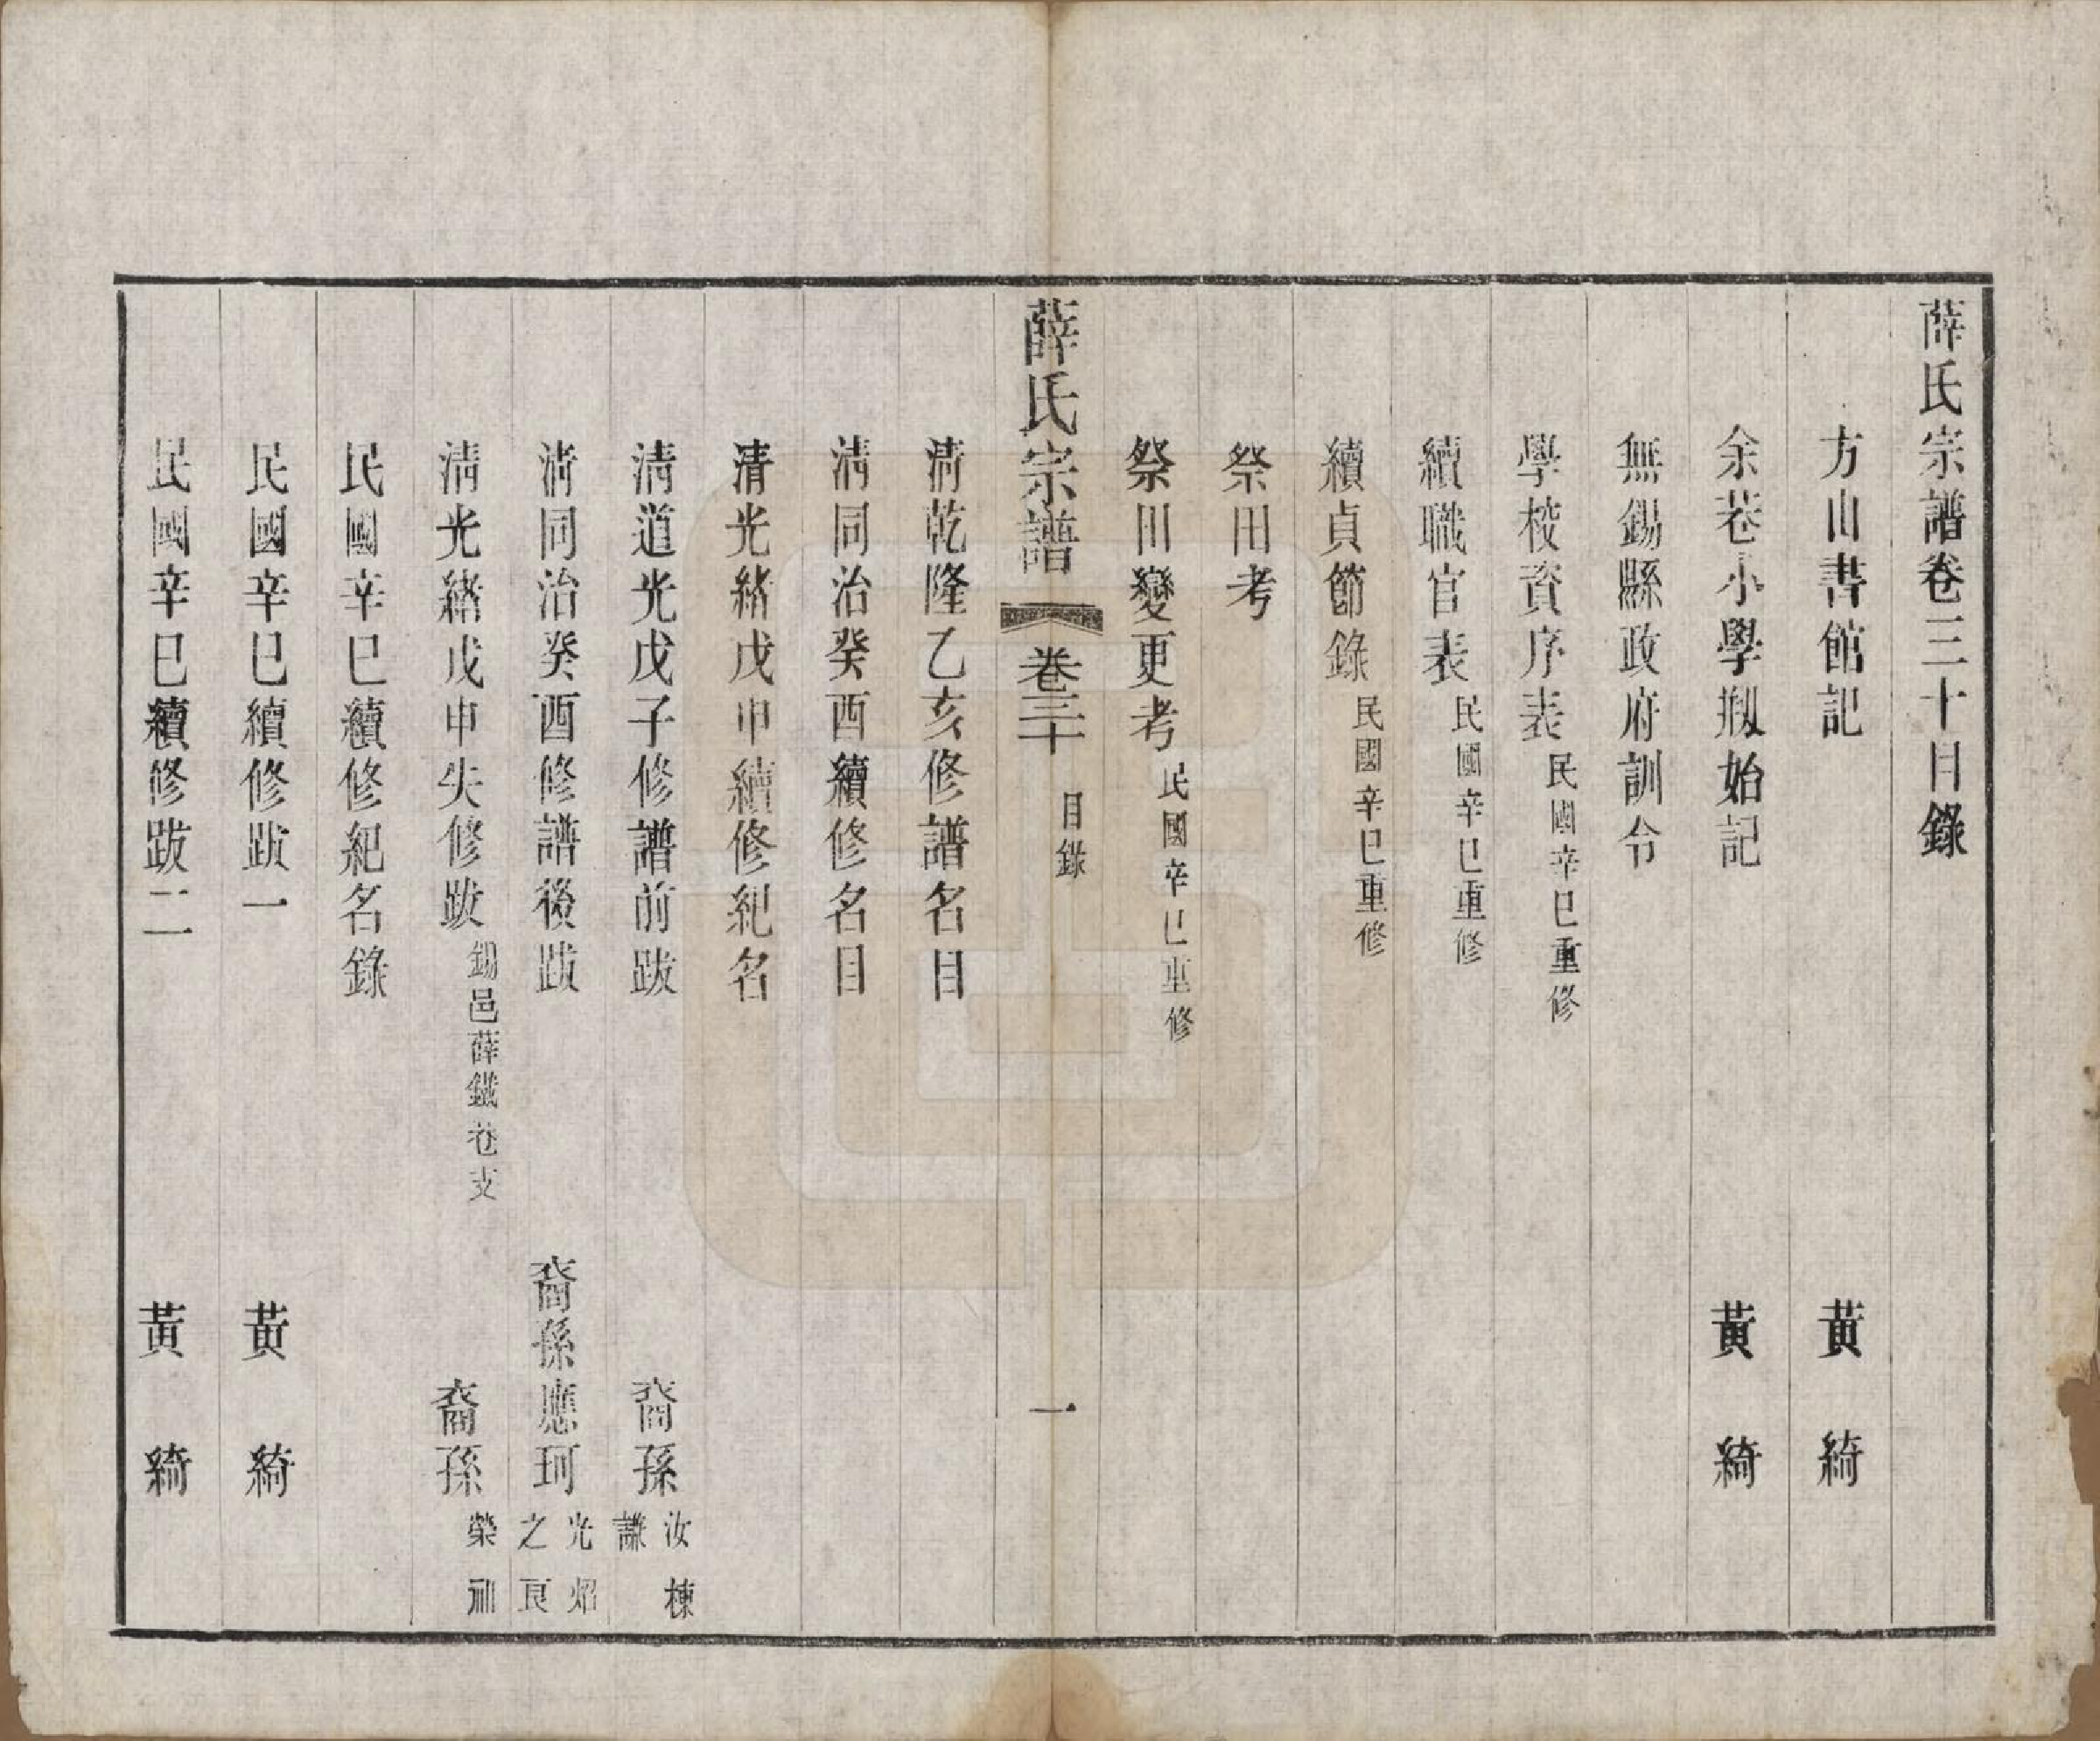 薛氏宗譜卷三十目錄
方山書館記　黃　綺
余巷小學剏始記　黃　綺
無錫縣政府訓令
學校資序表 民國辛巳重修
續職官表 民國辛巳重修
續貞節錄 民國辛巳重修
祭田考
祭田變更考 民國辛巳重修
薛氏宗譜　卷三十　目錄　一
清乾隆乙亥修譜名目
清同治癸酉續修名目
清光緒戊申續修紀名
清道光戊子修譜前跋　裔孫 汝棟 謙
清同治癸酉修譜後跋　裔孫應珂 光炤 之良
清光緒戊申失修跋 錫邑薛鐵巷支　裔孫 榮
民國辛巳續修紀名錄
民國辛巳續修跋一　黃　綺
民國辛巳續修跋二　黃　綺